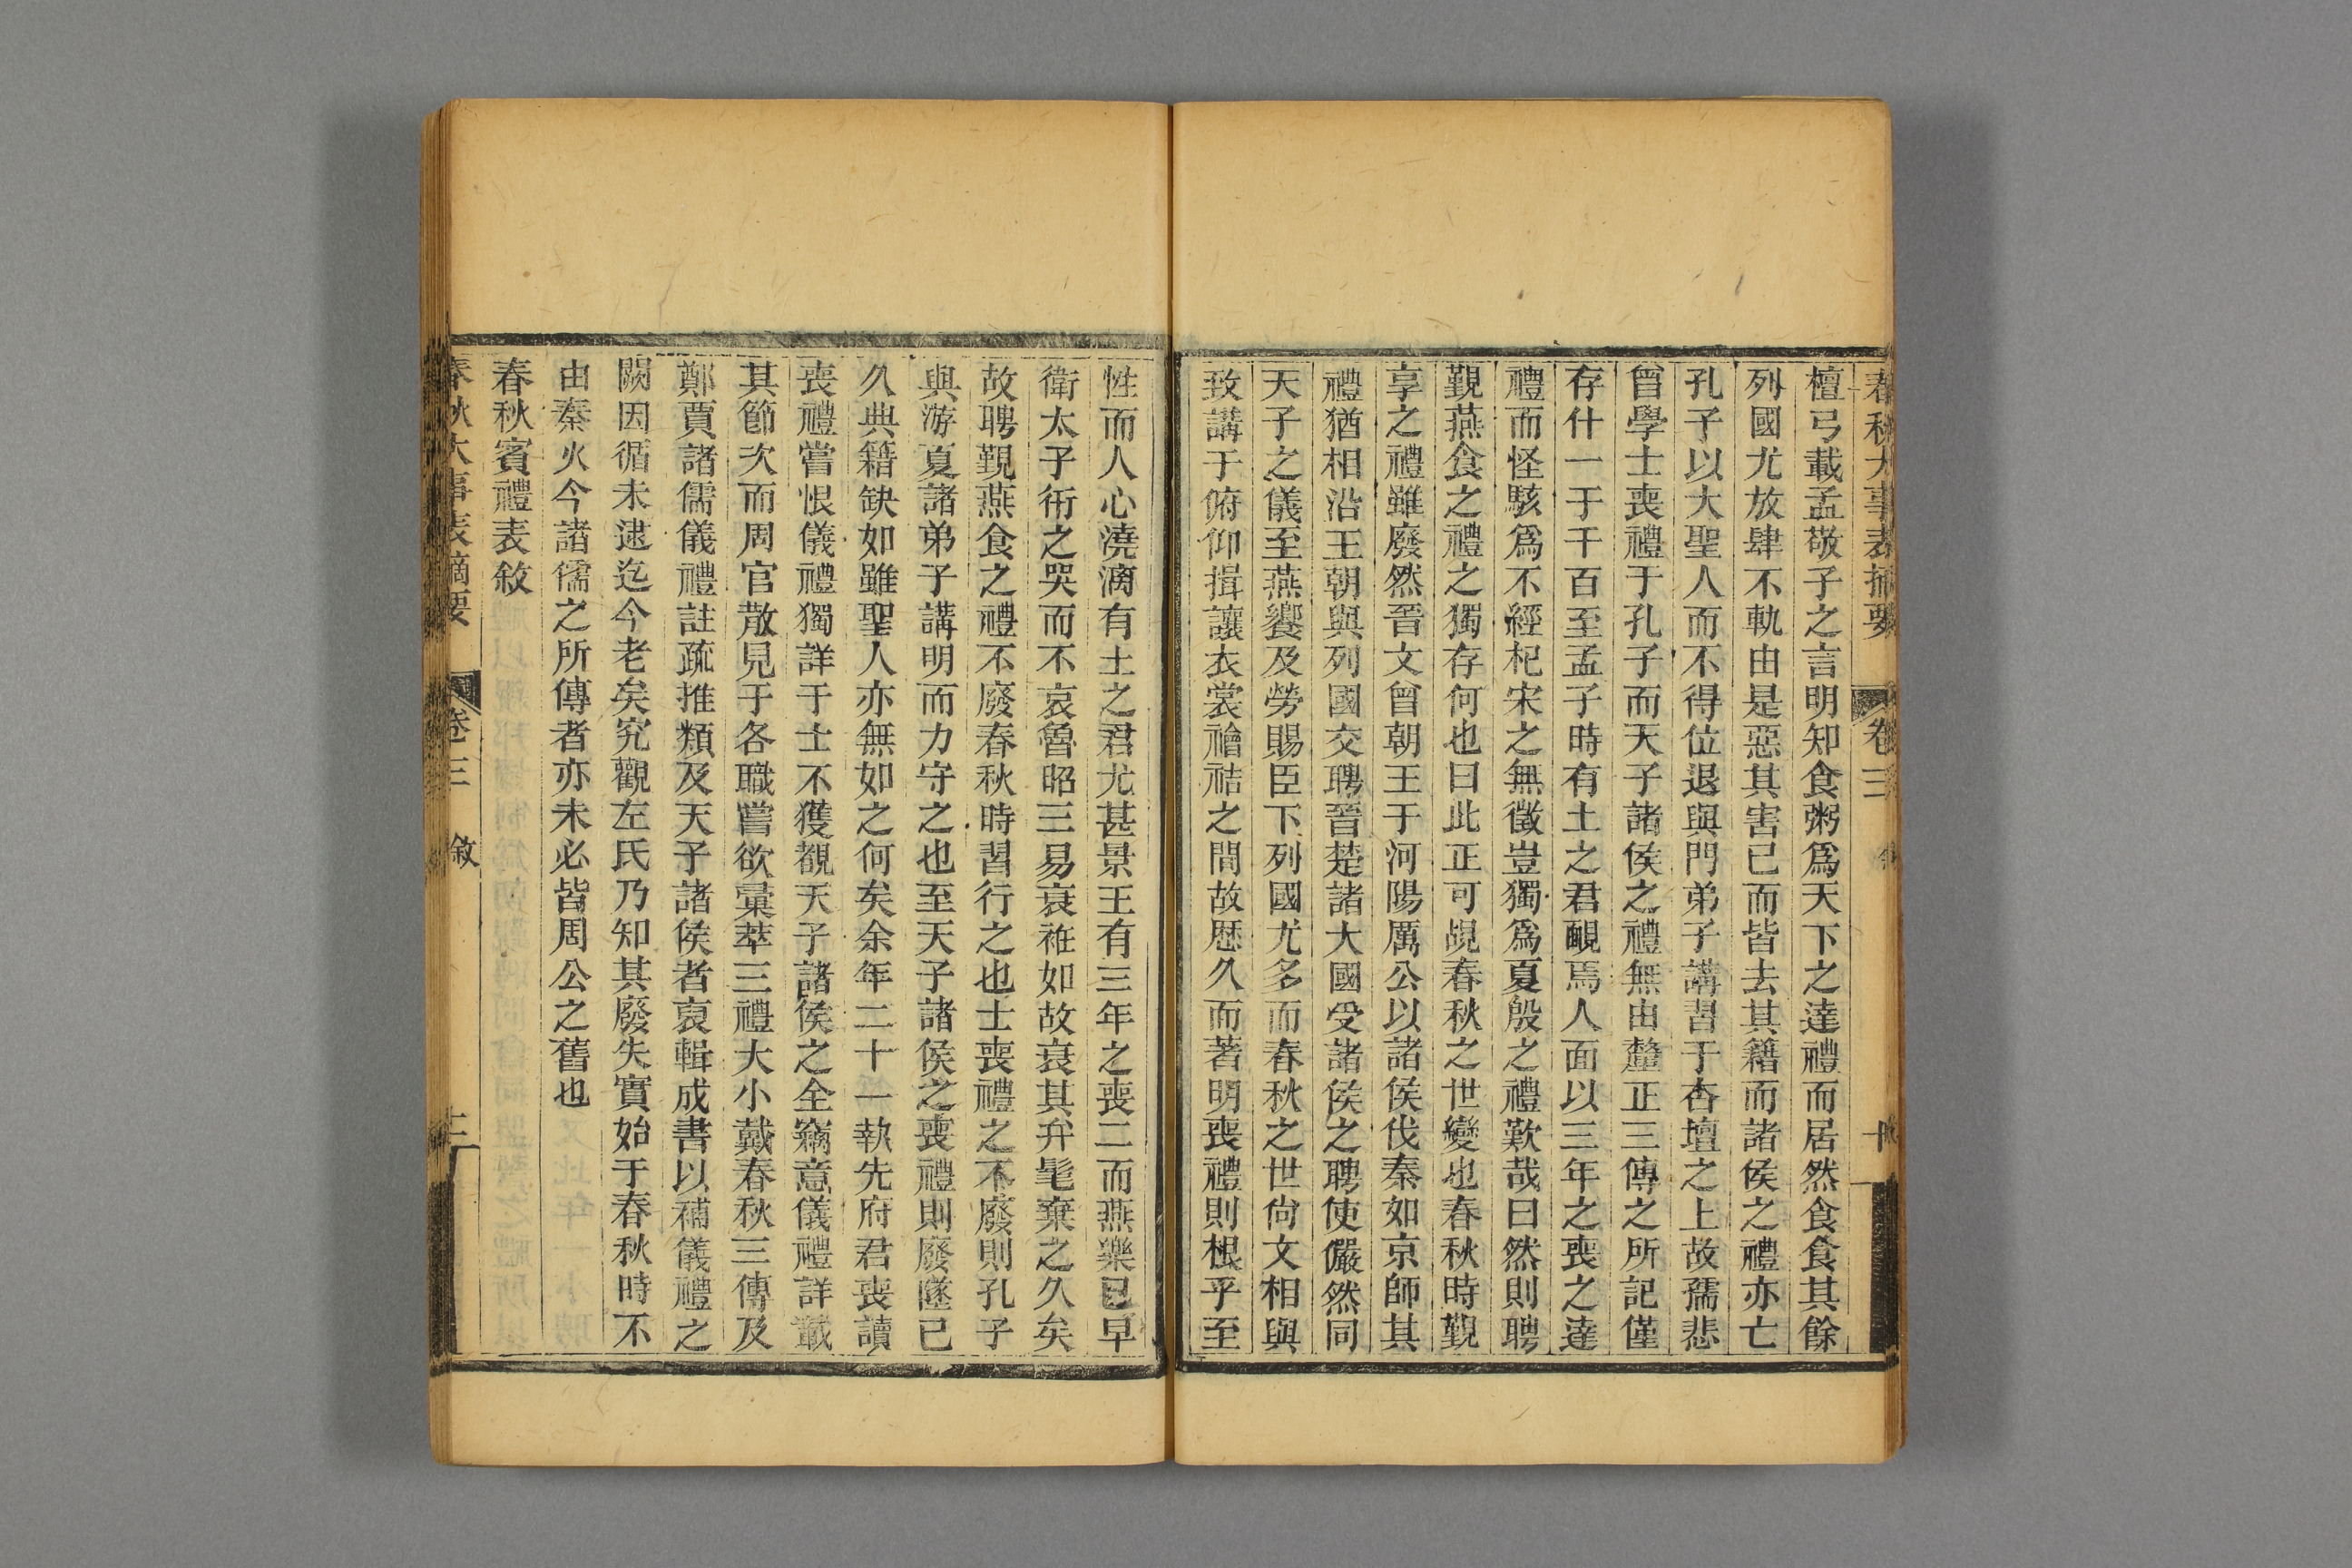 春秋大事表摘要 卷三 十
檀弓載孟敬子之言明知食粥爲天下之達禮而居然食食其餘
列國尤放肆不軌由是惡其害已而皆去其籍而諸侯之禮亦亡
孔子以大聖人而不得位退與門弟子講習于杏壇之上故孺悲
曾學士喪禮于孔子而天子諸侯之禮無由釐正三傳之所記僅
存什一于千百至孟子時有土之君靦焉人面以三年之喪之達
禮而怪駭爲不經杞宋之無徵豈獨爲夏殷之禮歎哉曰然則聘
覲燕食之禮之獨存何也曰此正可覘春秋之世變也春秋時覲
享之禮雖廢然晉文曾朝王于河陽厲公以諸侯伐秦如京師其
禮猶相沿王朝與列國交聘晉楚諸大國受諸侯之聘使儼然同
天子之儀至燕饗及勞賜臣下列國尤多而春秋之世尙文相與
致講于俯仰揖讓衣裳襘祮之間故歷久而著明喪禮則根乎至
性而人心澆漓有土之君尤甚景王有三年之喪二而燕樂已早
衛太子衎之哭而不哀魯昭三易衰衽如故衰其弁髦棄之久矣
故聘覲燕食之禮不廢春秋時習行之也士喪禮之不廢則孔子
與游夏諸弟子講明而力守之也至天子諸侯之喪禮則廢墜已
久典籍缺如雖聖人亦無如之何矣余年二十一執先府君喪讀
喪禮嘗恨儀禮獨詳于士不獲覩天子諸侯之全竊意儀禮詳載
其節次而周官散見于各職嘗欲彙萃三禮大小戴春秋三傳及
鄭賈諸儒儀禮註疏推類及天子諸侯者裒輯成書以補儀禮之
闕因循未逮迄今老矣究觀左氏乃知其廢失實始于春秋時不
由秦火今諸儒之所傳者亦未必皆周公之舊也
春秋賓禮表敘
春秋大事表摘要 卷三 敘